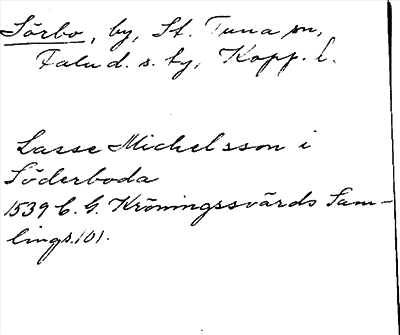 Sörbo, by, St. Tuna sn,
Falu d. s. fg, Kopp. l.
Lasse Michelsson i
Söderboda
1539 C. G. Kröningssvärds Sam-
lings. 101.